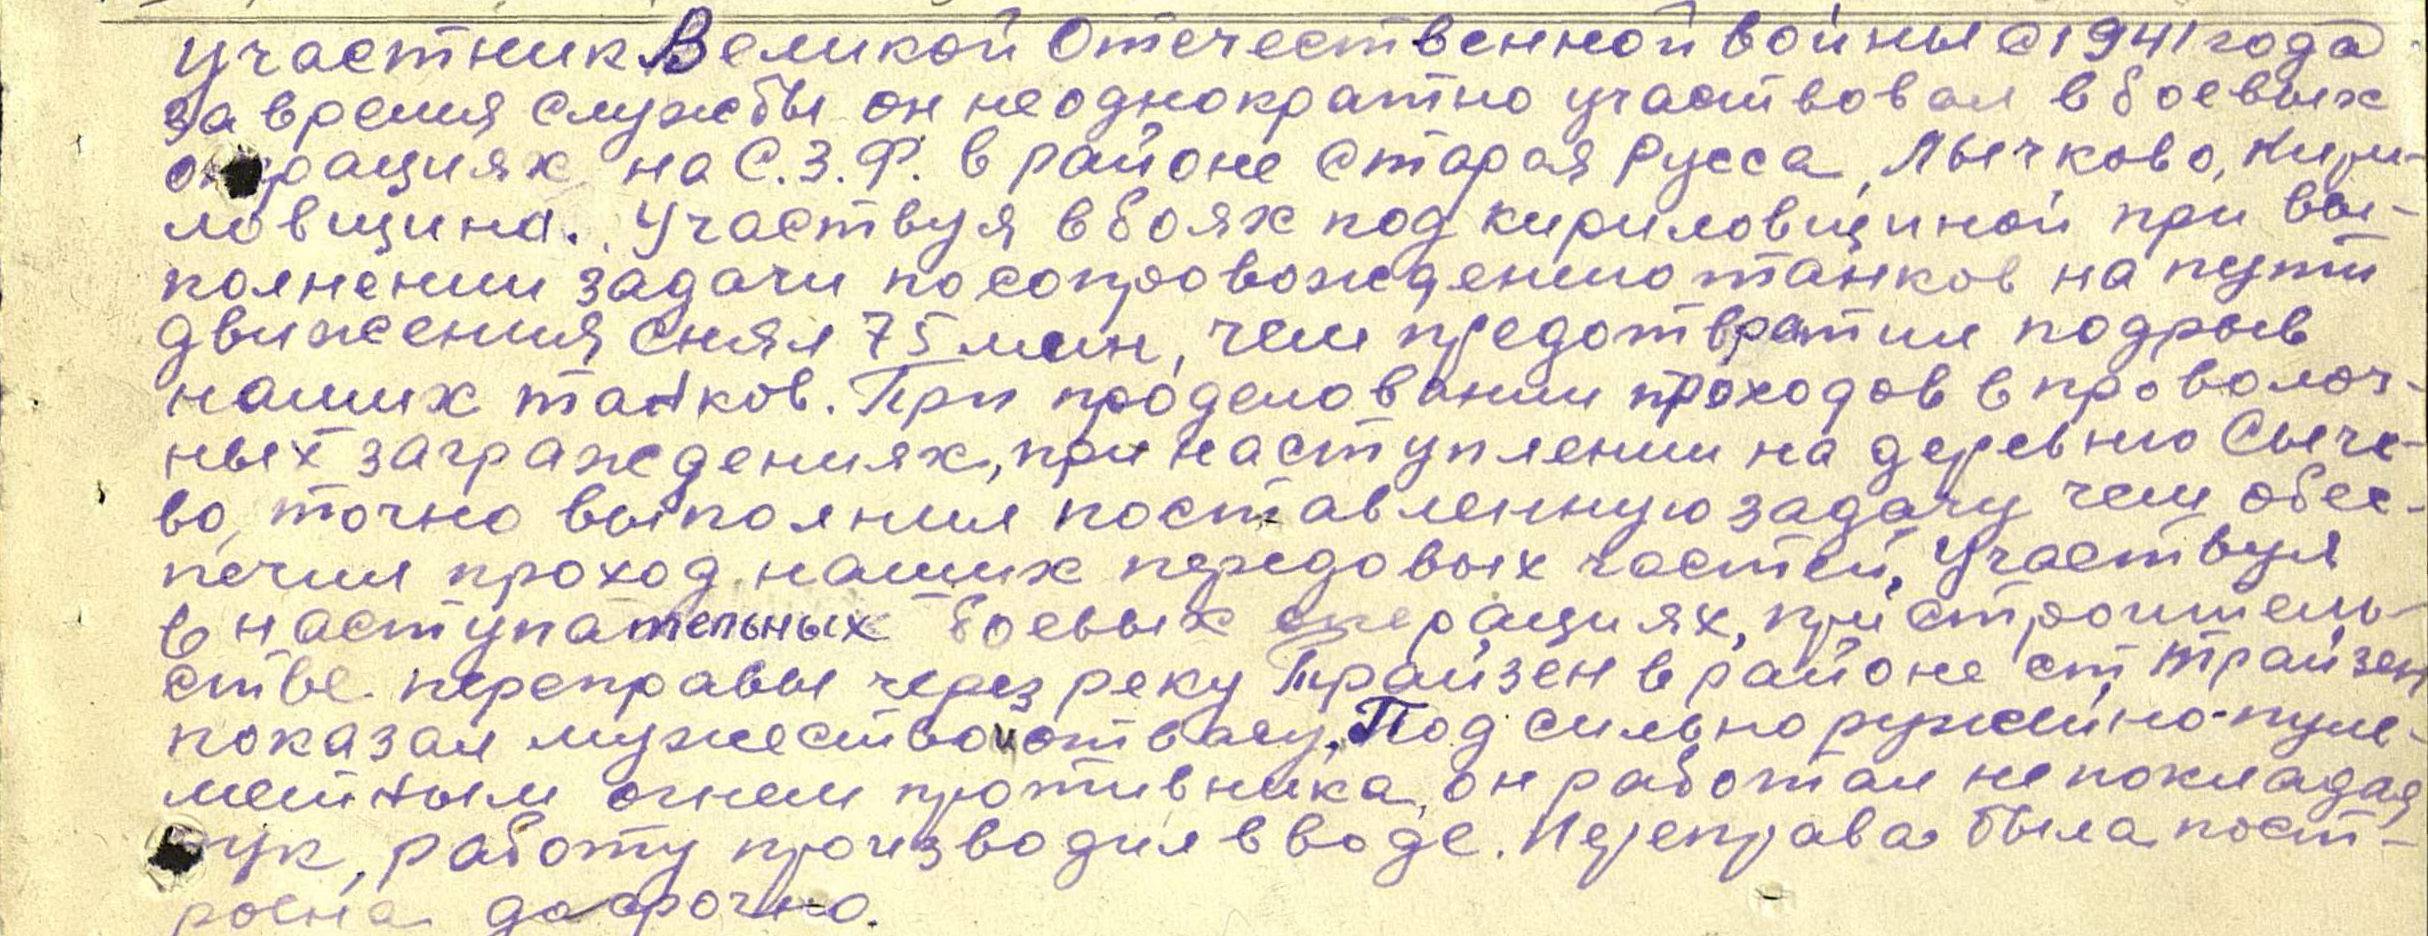 Участник Великой Отечественной войны с 1941 года
за время службы он неоднократно участвовал в боевых
операциях на С.З.Ф. в районе Старая Русса, Лычково, Кири-
ловщина. Участвуя в боях под Кириловщиной при вы-
полнении задачи по сопровождению танков на пути
движения снял 75 мин, чем предотвратил подрыв
наших танков. При проделовании проходов в проволоч-
ных заграждениях, при наступлении на деревню Сыче-
во, точно выполнил поставленную задачу чем обес-
печил проход наших передовых частей. Участвуя
в наступательных боевых операциях, при строитель-
стве переправы через реку Трайзен в районе ст. Трайзен
показал мужество и отвагу. Под сильно ружейно-пуле-
метным огнем противника, он работал не покладая
рук, работу производил в воде. Переправа была пост-
роена досрочно.